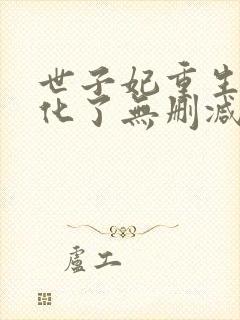 世子妃重生
化了無刪减
盧工